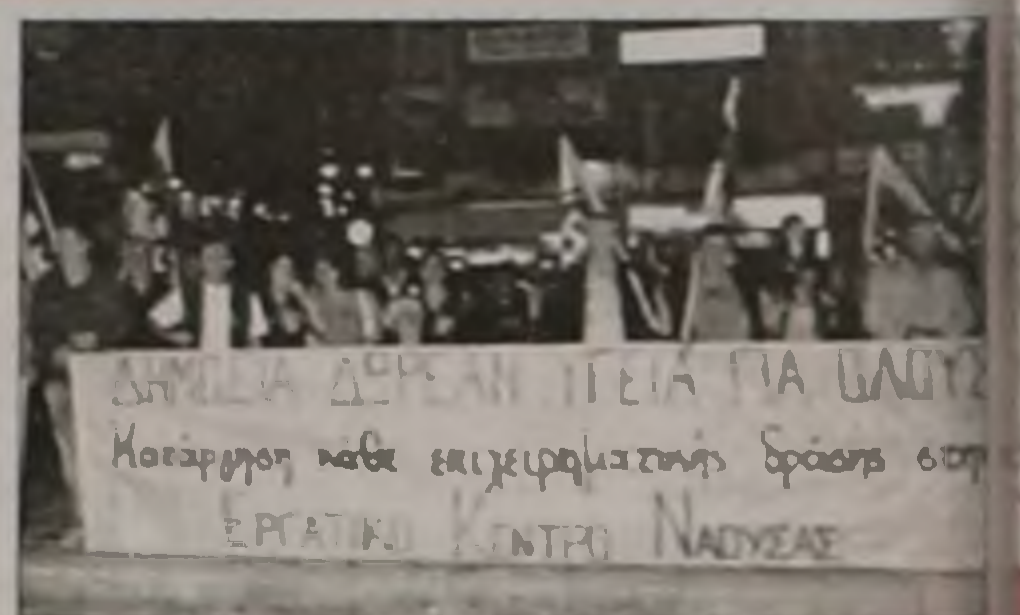 ΔΗΜΟΣΙΑ ΔΩΡΕΑΝ ΥΓΕΙΑ ΓΙΑ ΟΛΟΥΣ
Κατάργηση κάθε επιχειρηματικής δράσης στην
ΕΡΓΑΤΙΚΟ ΚΕΝΤΡΟ ΝΑΟΥΣΑΣ